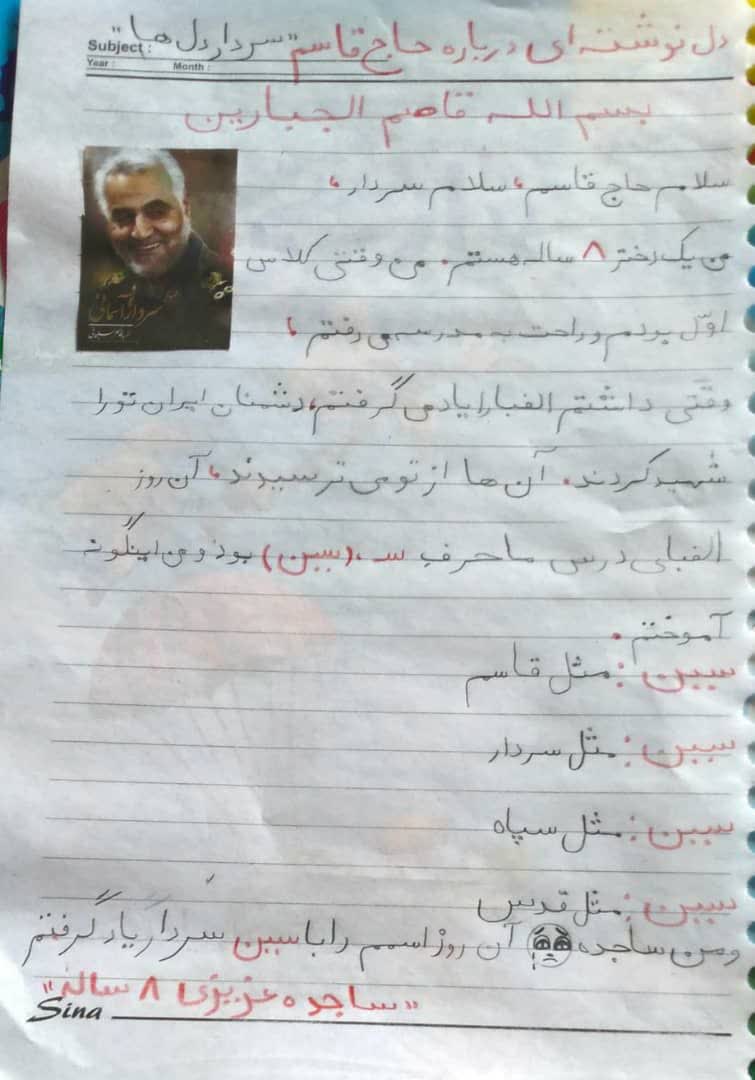 دل نوشته ای درباره حاج قاسم "سردار دل ها"
Subject :
Year :
Month :
بسم الله قاصم الجبارین
سلام حاج قاسم، سلام سردار،
سردار آسمانی
من یک دختر ۸ ساله هستم. من وقتی کلاس
اوّل بودم و راحت به مدرسه می رفتم،
وقتی داشتم الفبا را یاد می گرفتم، دشمنان ایران تو را
شهید کردند. آن ها از تو می ترسیدند، آن روز
الفبای درس ما حرف سـ ، (سین) بود و من اینگونه
آموختم.
سین : مثل قاسم
سین : مثل سردار
سین : مثل سپاه
سین : مثل قدس
و من ساجده آن روز اسمم را با سین سردار یاد گرفتم
"ساجده عزیزی ۸ ساله"
Sina